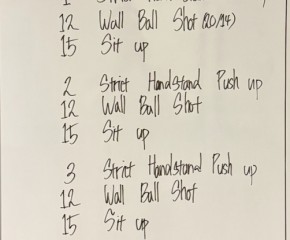 12 Wall Ball Shot (20/14)
15 Sit up
2 Strict Handstand Push up
12 Wall Ball Shot
15 Sit up
3 Strict Handstand Push up
12 Wall Ball Shot
15 Sit up